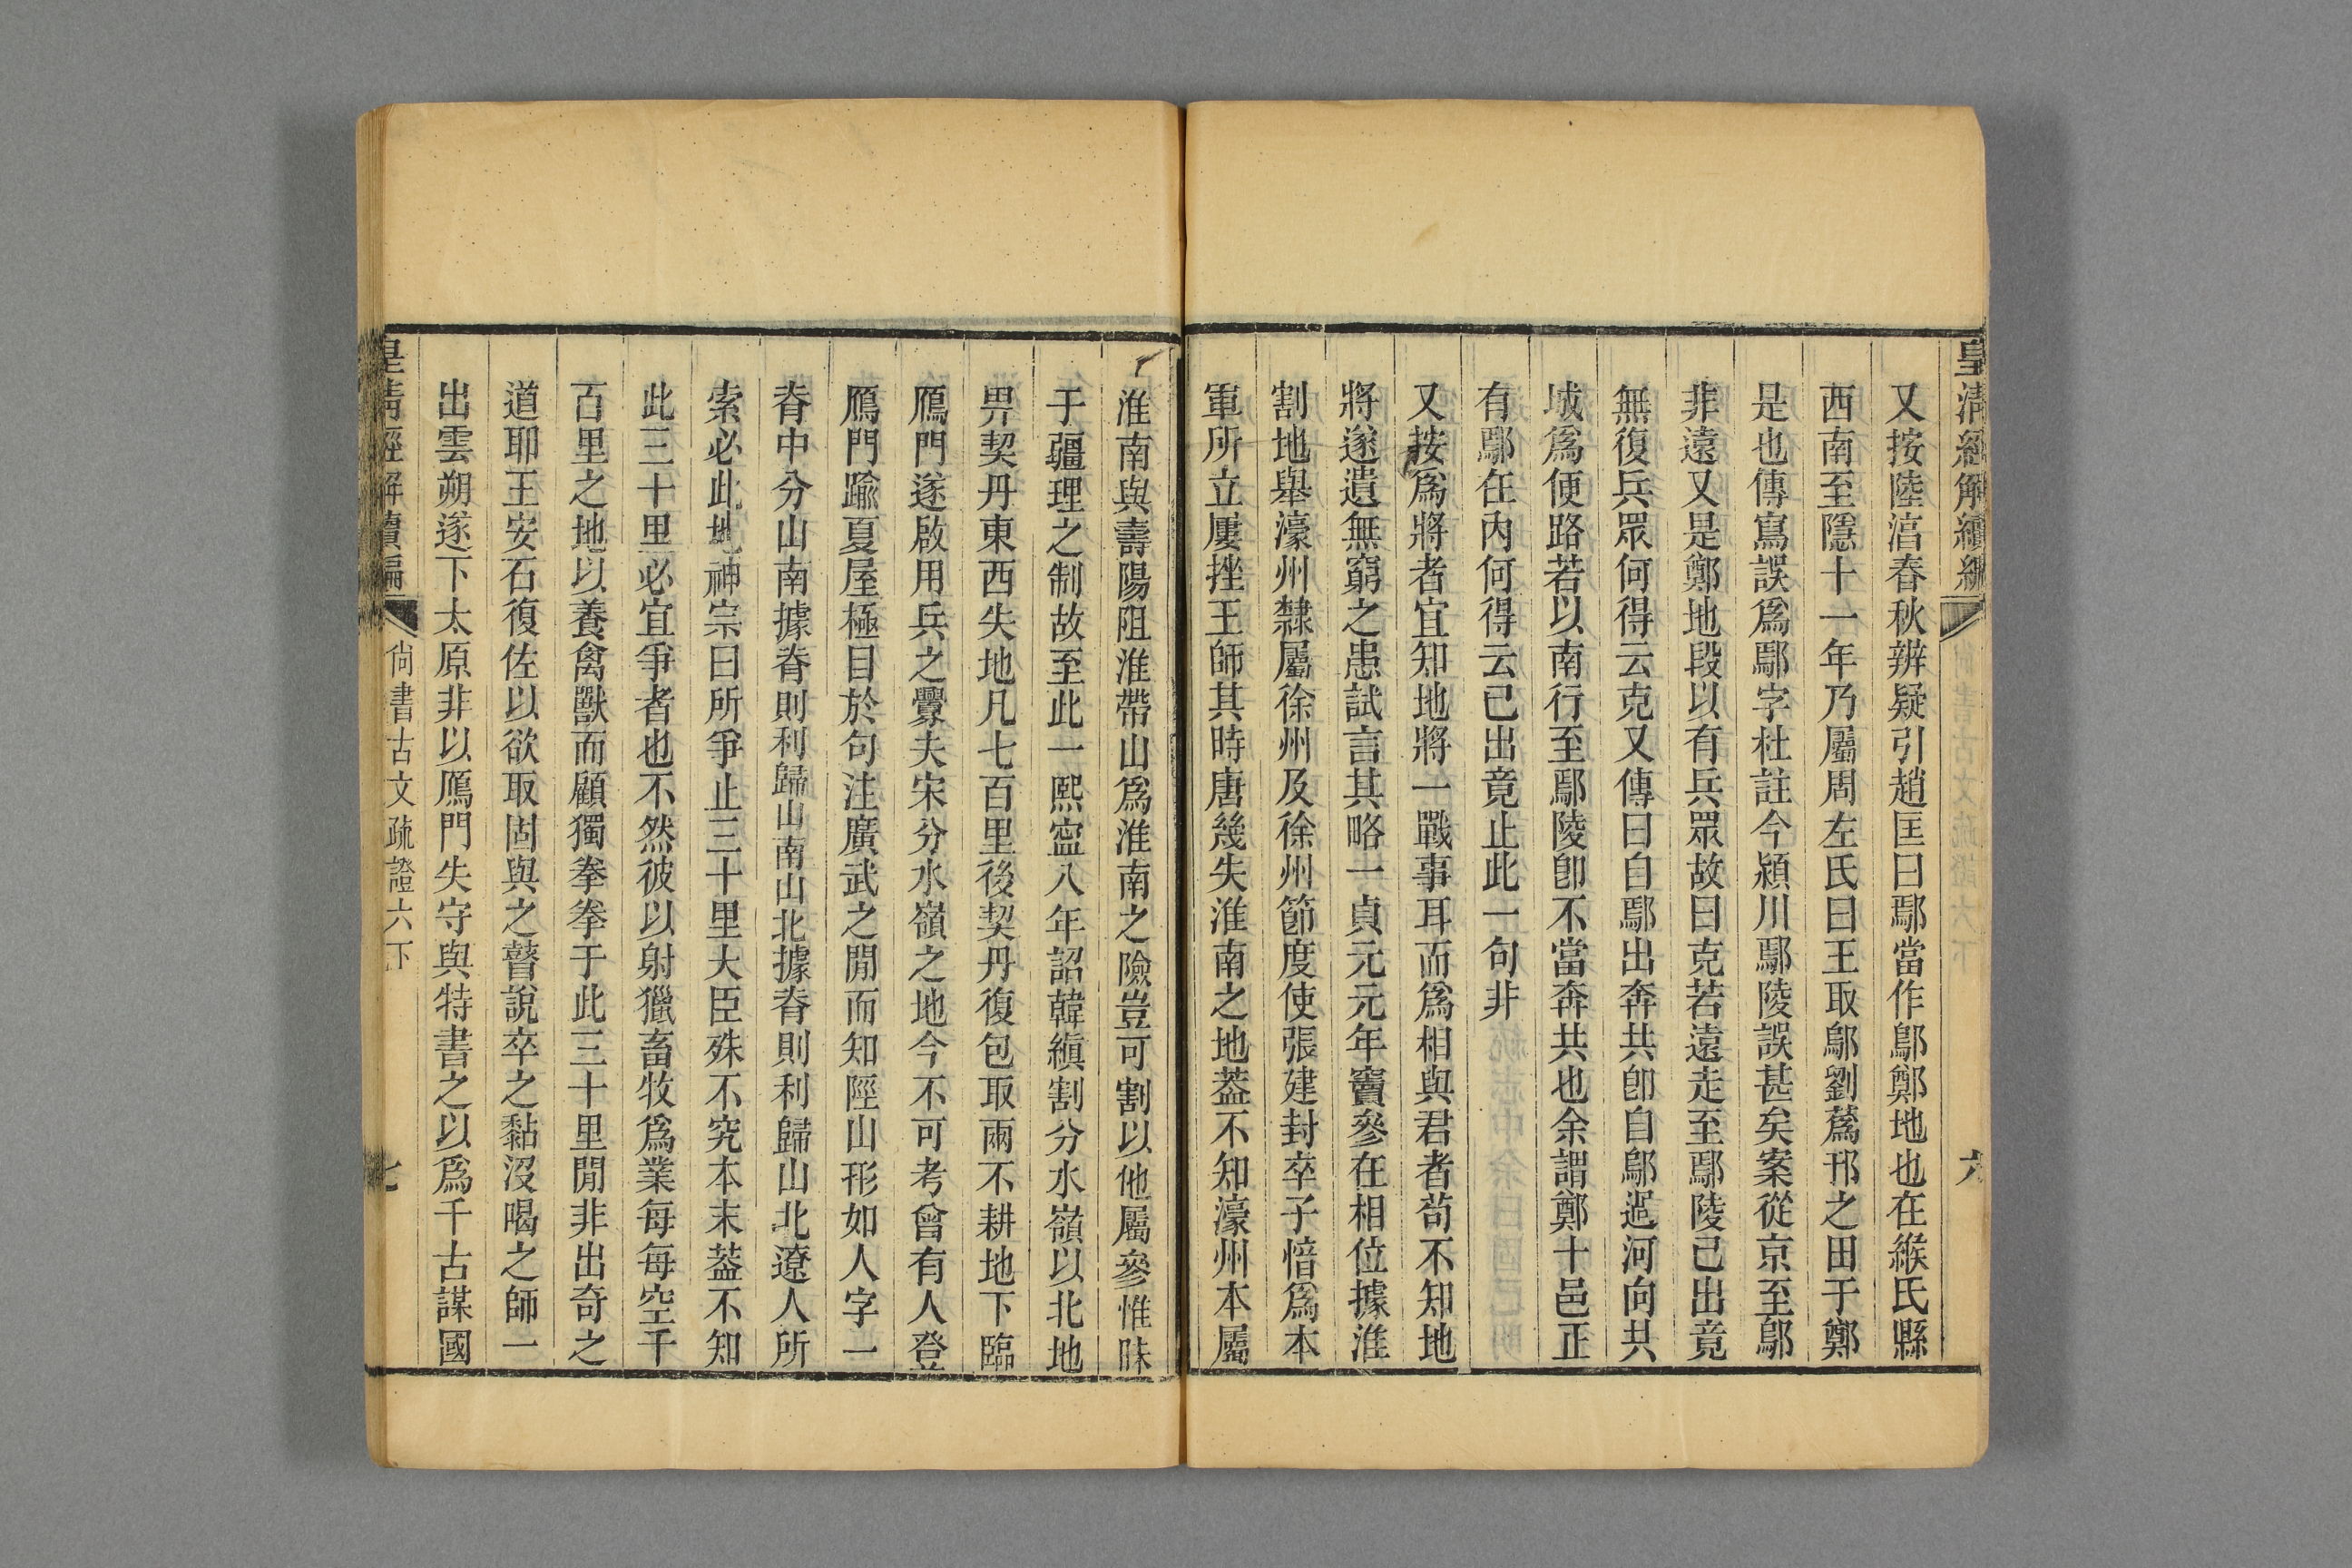 皇清經解續編
六
又按陸淳春秋辨疑引趙匡曰鄢當作鄔鄭地也在緱氏縣
西南至隱十一年乃屬周左氏曰王取鄔劉蒍邗之田于鄭
是也傳寫誤爲鄢字杜註今潁川鄢陵誤甚矣案從京至鄔
非遠又是鄭地段以有兵眾故曰克若遠走至鄢陵已出竟
無復兵眾何得云克又傳曰自鄢出奔共卽自鄔過河向共
城爲便路若以南行至鄢陵卽不當奔共也余謂鄭十邑正
有鄢在內何得云已出竟止此一句非
又按爲將者宜知地將一戰事耳而爲相與君者茍不知地
將遂遺無窮之患試言其略一貞元元年竇參在相位據淮
割地舉濠州隸屬徐州及徐州節度使張建封卒子愔爲本
軍所立屢挫王師其時唐幾失淮南之地葢不知濠州本屬
淮南與壽陽阻淮帶山爲淮南之險豈可割以他屬參惟昧
于疆理之制故至此一熙寍八年詔韓縝割分水嶺以北地
畀契丹東西失地凡七百里後契丹復包取兩不耕地下臨
鴈門遂啟用兵之釁夫宋分水嶺之地今不可考曾有人登
鴈門踰夏屋極目於句注廣武之閒而知陘山形如人字一
脊中分山南據脊則利歸山南山北據脊則利歸山北遼人所
索必此地神宗曰所爭止三十里大臣殊不究本末葢不知
此三十里必宜爭者也不然彼以射獵畜牧爲業每每空千
百里之地以養禽獸而顧獨拳拳于此三十里閒非出奇之
道耶王安石復佐以欲取固與之瞽說卒之黏沒喝之師一
出雲朔遂下太原非以鴈門失守與特書之以爲千古謀國
皇清經解續編
尙書古文疏證六下
七